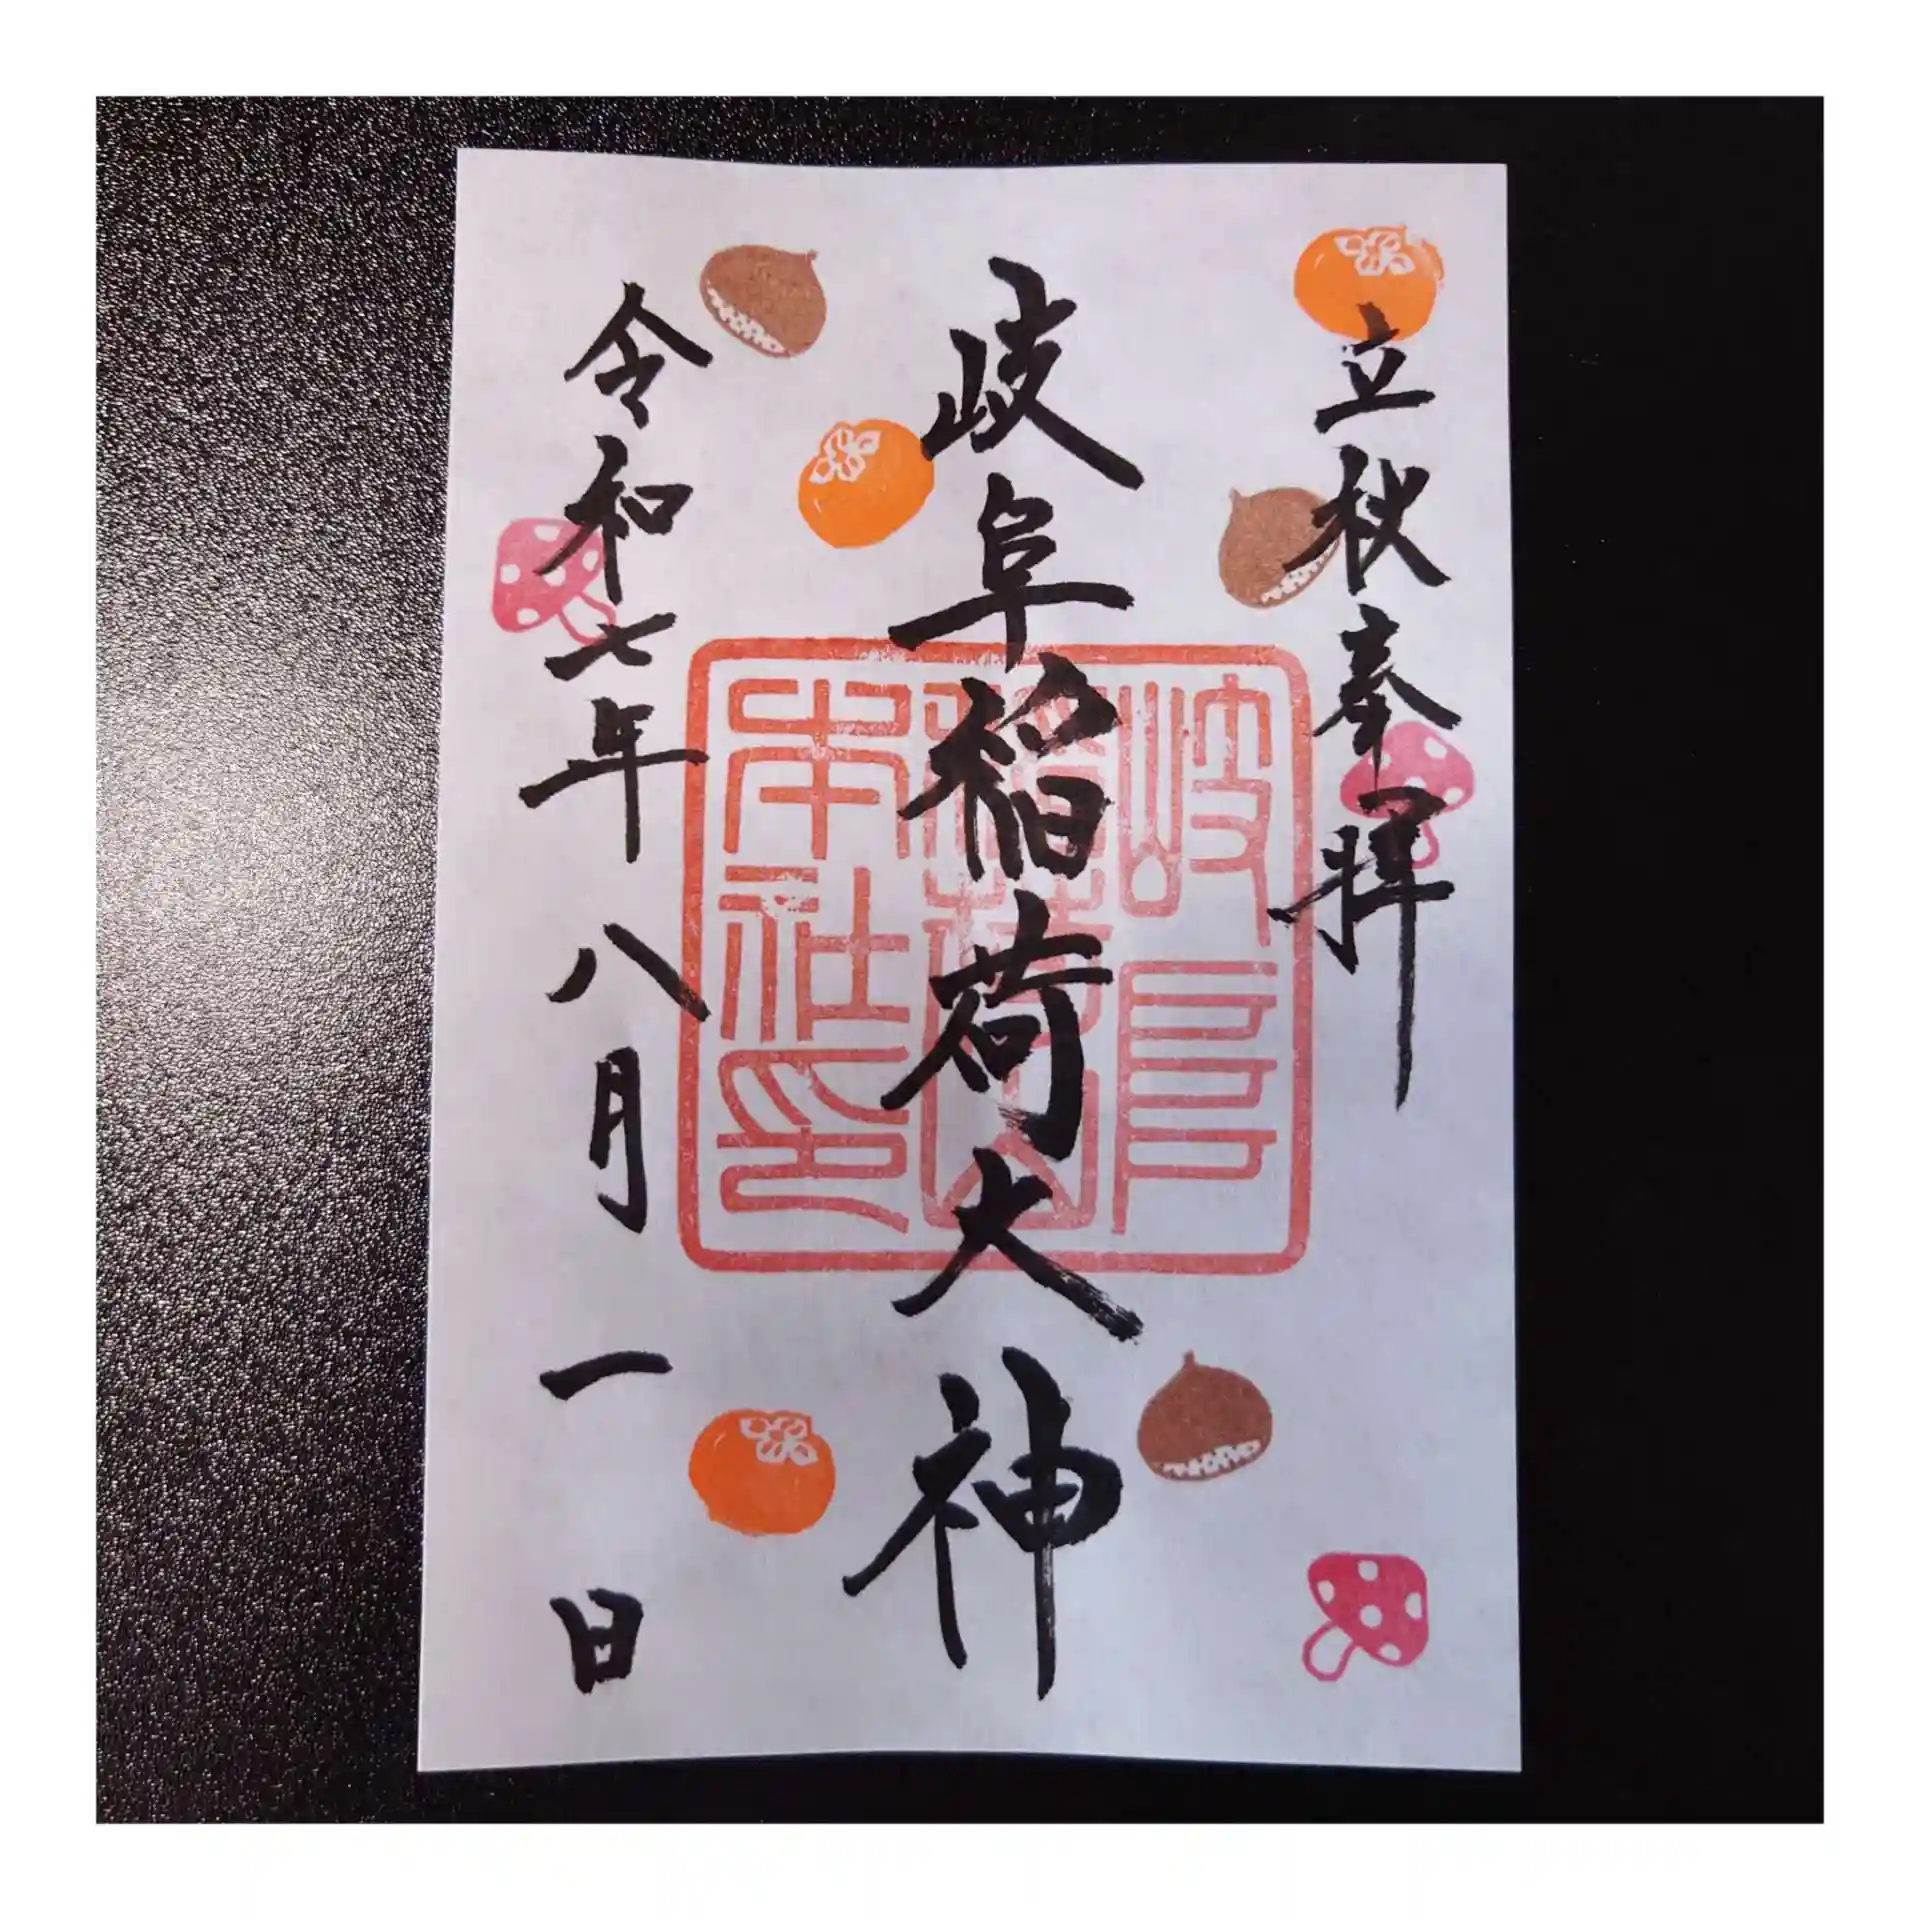 立秋奉拝
岐阜稲荷大神
岐阜
稲荷山
本社印
令和七年八月一日